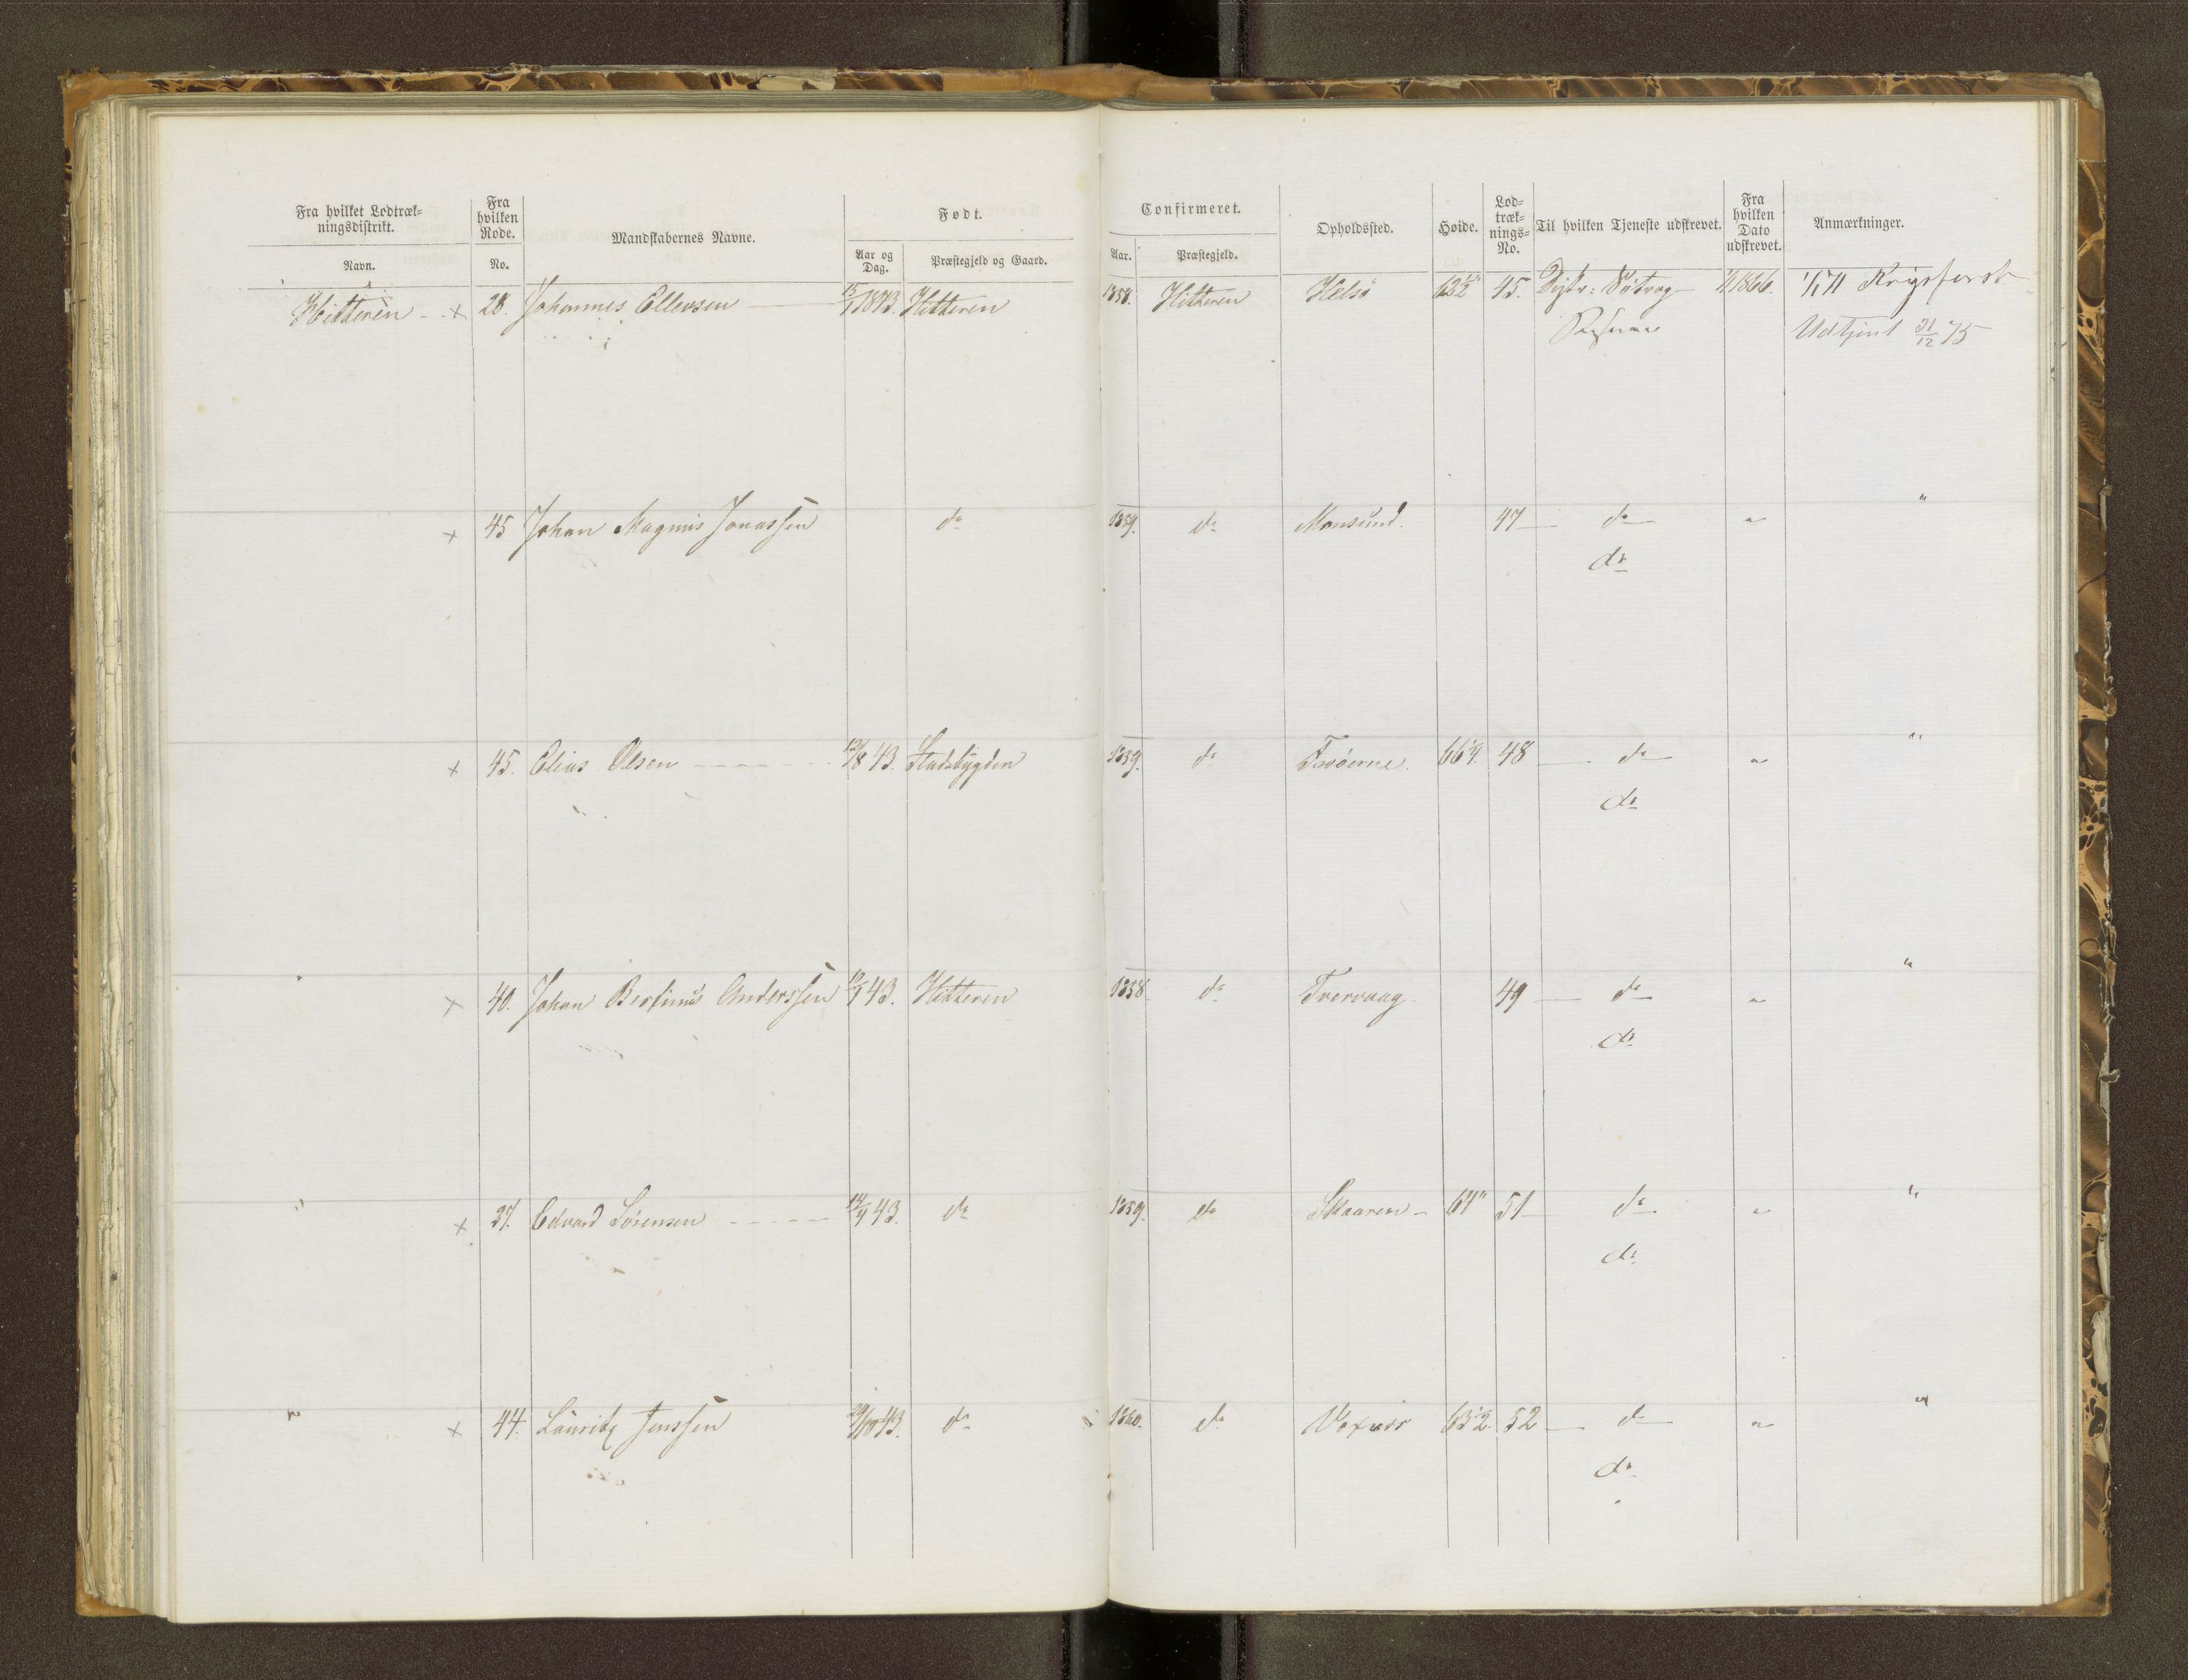 Fra hvilket Lodtræk-
ningsdistrikt.
Navn.
Fra
hvilken
Rode.
No.
Mandskabernes Navne.
Født.
Aar og
Dag.
Præstegjeld og Gaard.
Confirmeret.
Aar.
Præstegjeld.
Opholdssted.
Høide.
Lod-
træk-
nings-
No.
Til hvilken Tjeneste udskrevet.
Fra
hvilken
Dato
udskrevet.
Anmærkninger.
Hitteren x 28. Johannes Ellevsen 15/1 1843. Hitteren 1858. Hitteren Helsø 63½" 45. 1/1 1866. 1/1 71
Udtjent 31/12 75
x 45 Johan Magnus Jonassen do 1859. do Mausund. 47 — do — " "
do
x 45. Elias Olsen 12/8 43. Stadsbygden 1859. do 48 — do — " "
do
" x 40. Johan Bertinus Anderssen 43. Hitteren 1858. do Tvervaag 49 — do " "
do
" x 37. Edvard Sørensen 43. do 1859. do Skaaren 64" 51 do " "
do
" x 44. Lauritz Jenssen 29/10 43. do 1860. do 63½. 52 — do — " "
do